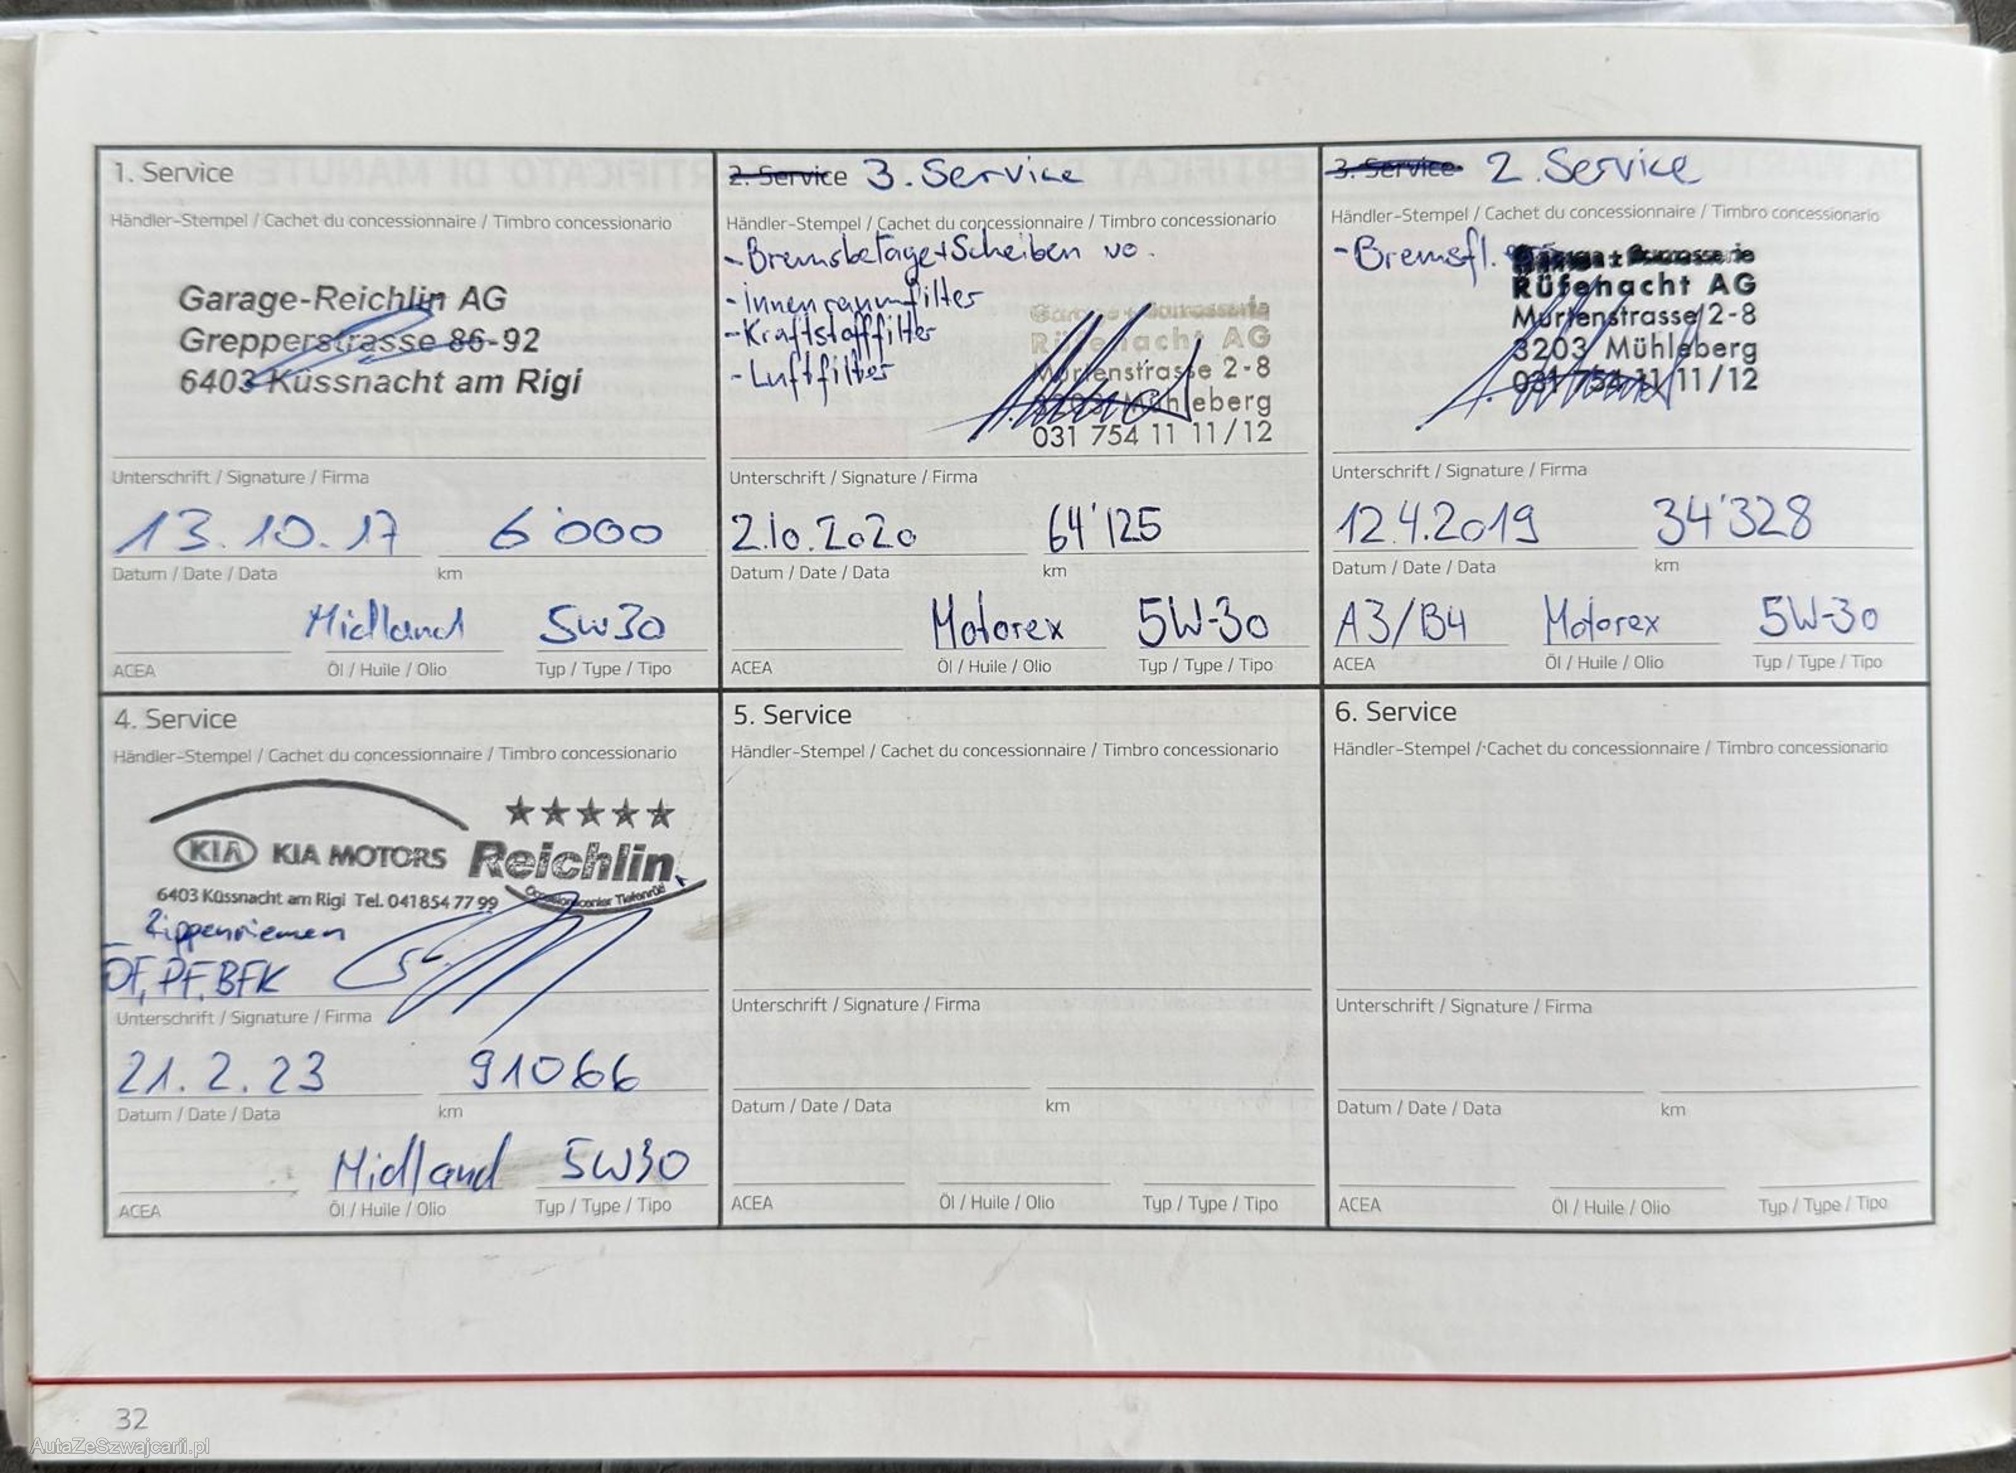 1. Service
Händler-Stempel / Cachet du concessionnaire / Timbro concessionario
Garage-Reichlin AG
Grepperstrasse 86-92
6403 Küssnacht am Rigi
Unterschrift / Signature / Firma
13.10.17 6'000
Datum / Date / Data km
Midland 5W30
ACEA Öl / Huile / Olio Typ / Type / Tipo
2. Service 3. Service
Händler-Stempel / Cachet du concessionnaire / Timbro concessionario
- Bremsbeläge+Scheiben vo.
- Innenraumfilter
- Kraftstofffilter
- Luftfilter
Garage + Carrosserie
Rüfenacht AG
Murtenstrasse 2-8
3203 Mühleberg
031 754 11 11/12
Unterschrift / Signature / Firma
2.10.2020 64'125
Datum / Date / Data km
Motorex 5W-30
ACEA Öl / Huile / Olio Typ / Type / Tipo
3. Service 2. Service
Händler-Stempel / Cachet du concessionnaire / Timbro concessionario
- Bremsfl.
Garage + Carrosserie
Rüfenacht AG
Murtenstrasse 2-8
3203 Mühleberg
031 754 11 11/12
Unterschrift / Signature / Firma
12.4.2019 34'328
Datum / Date / Data km
A3/B4 Motorex 5W-30
ACEA Öl / Huile / Olio Typ / Type / Tipo
4. Service
Händler-Stempel / Cachet du concessionnaire / Timbro concessionario
KIA KIA MOTORS Reichlin
6403 Küssnacht am Rigi Tel. 041 854 77 99
Rippenriemen
ÖF, PF, BFK
Unterschrift / Signature / Firma
21.2.23 91066
Datum / Date / Data km
Midland 5W30
ACEA Öl / Huile / Olio Typ / Type / Tipo
5. Service
Händler-Stempel / Cachet du concessionnaire / Timbro concessionario
Unterschrift / Signature / Firma
Datum / Date / Data km
ACEA Öl / Huile / Olio Typ / Type / Tipo
6. Service
Händler-Stempel / Cachet du concessionnaire / Timbro concessionario
Unterschrift / Signature / Firma
Datum / Date / Data km
ACEA Öl / Huile / Olio Typ / Type / Tipo
32
AutaZeSzwajcarii.pl